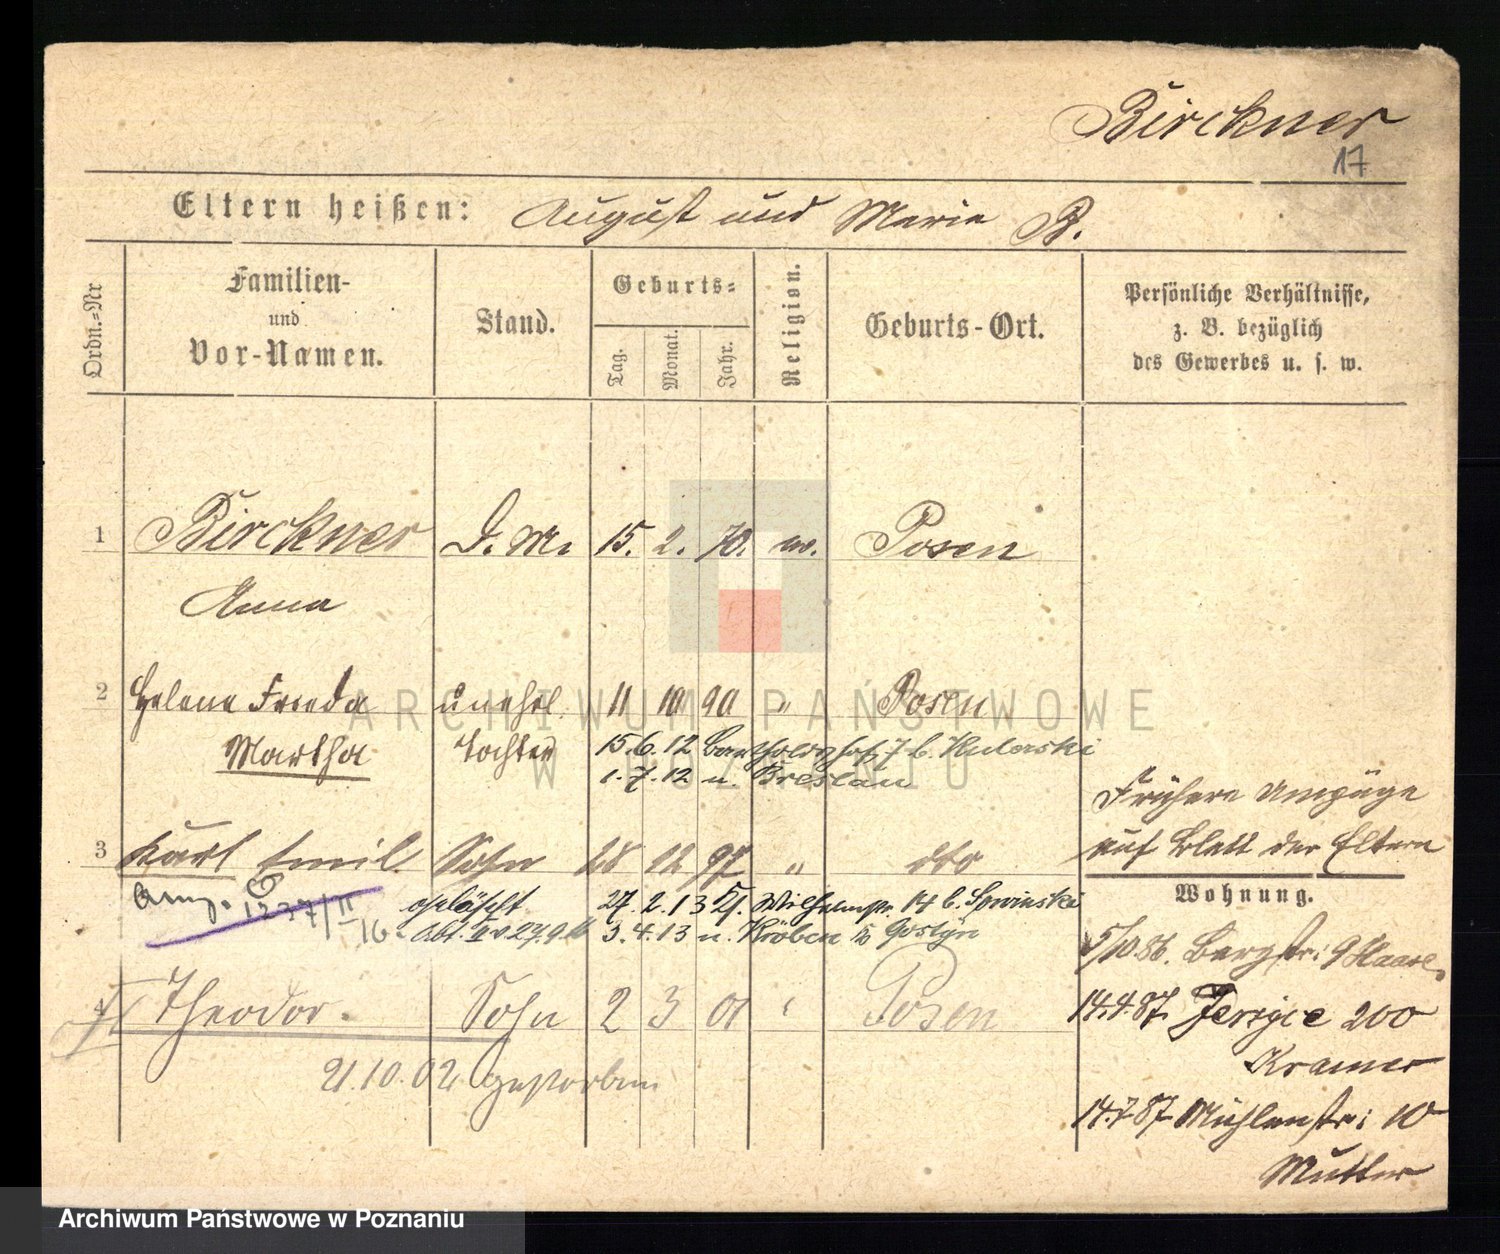 Birckner
17
Eltern heißen: August und Marie B.
Ordn.-Nr
Familien-
und
Vor-Namen.
Stand.
Geburts-
Tag.
Monat.
Jahr.
Religion.
Geburts-Ort.
Persönliche Verhältnisse,
z. B. bezüglich
des Gewerbes u. s. w.
1 Birckner D. M. 15. 2. 70. ev. Posen
Anna
2 Helene Frieda unehl. 11 10 90 " Posen
Martha Tochter 15.6.12 b. Hulerski
1.7.12 n. Breslau
Frühere Umzüge
auf Blatt der Eltern
3 Karl Emil. Sohn 28 12 97 " dto
1237/II 16. gelöscht 27.2.13 Wilhelmstr. 14 b. Sowinski
Abt. II v. 27.9.16 3.4.13 n. Kröben Gostyn
Wohnung.
5/10.86. Bergstr: 9
14.4.87. Jersyce 200
Kramer
14.7.87 Mühlenstr: 10
Mutter
4 Theodor. Sohn 2 3 01 Posen
21.10.02 gestorben
ARCHIWUM PAŃSTWOWE
W POZNANIU
Archiwum Państwowe w Poznaniu